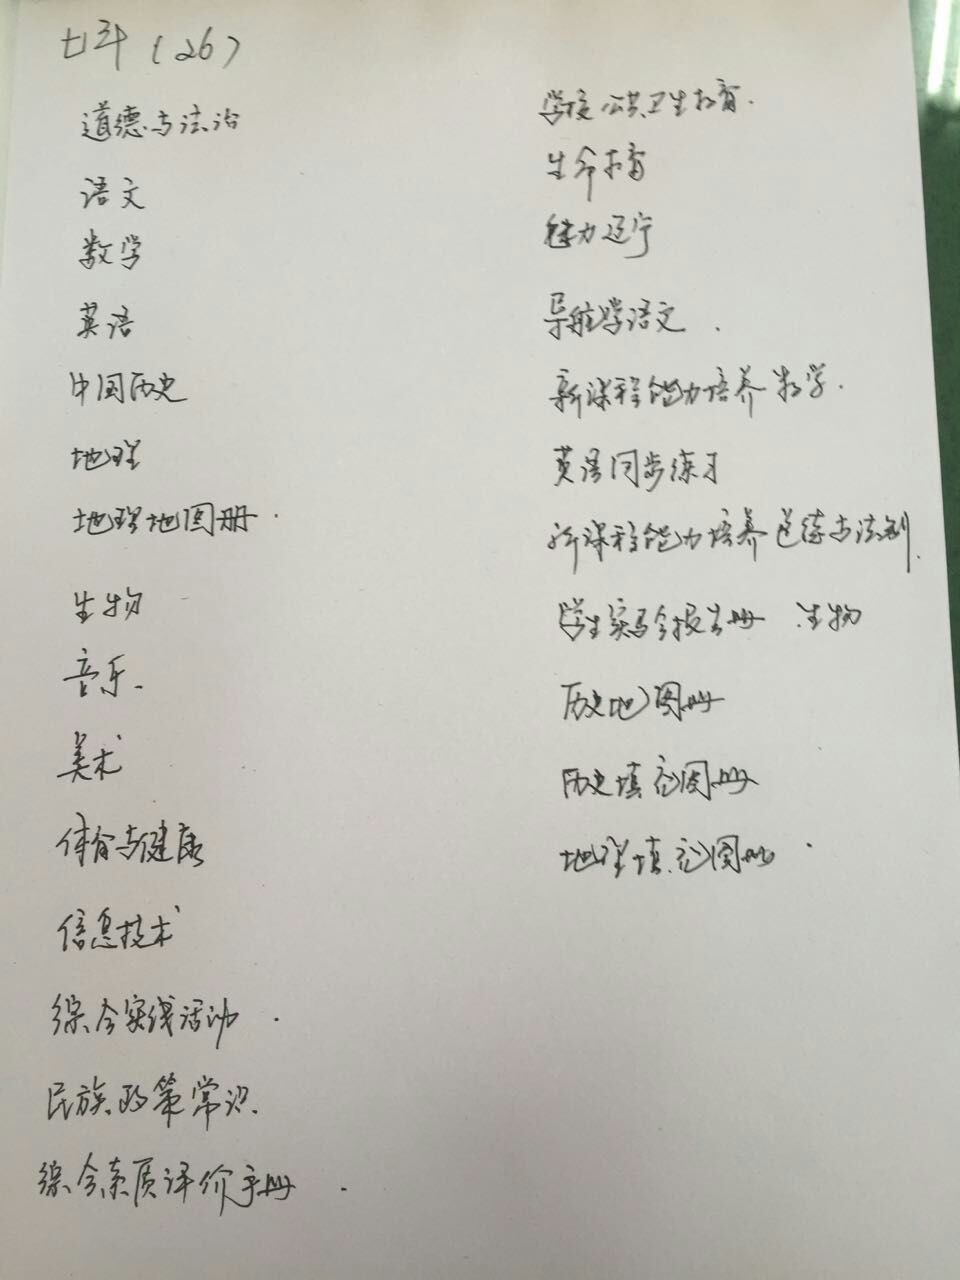 七年（26）
道德与法治
语文
数学
英语
中国历史
地理
地理地图册.
生物
音乐.
美术
体育与健康
信息技术
综合实践活动.
民族政策常识.
综合素质评价手册.
学校公共卫生教育.
生命教育
魅力辽宁
导航学语文.
新课程能力培养 数学.
英语同步练习
新课程能力培养 道德与法制.
学生实验报告册 生物
历史地图册
历史填充图册
地理填充图册.